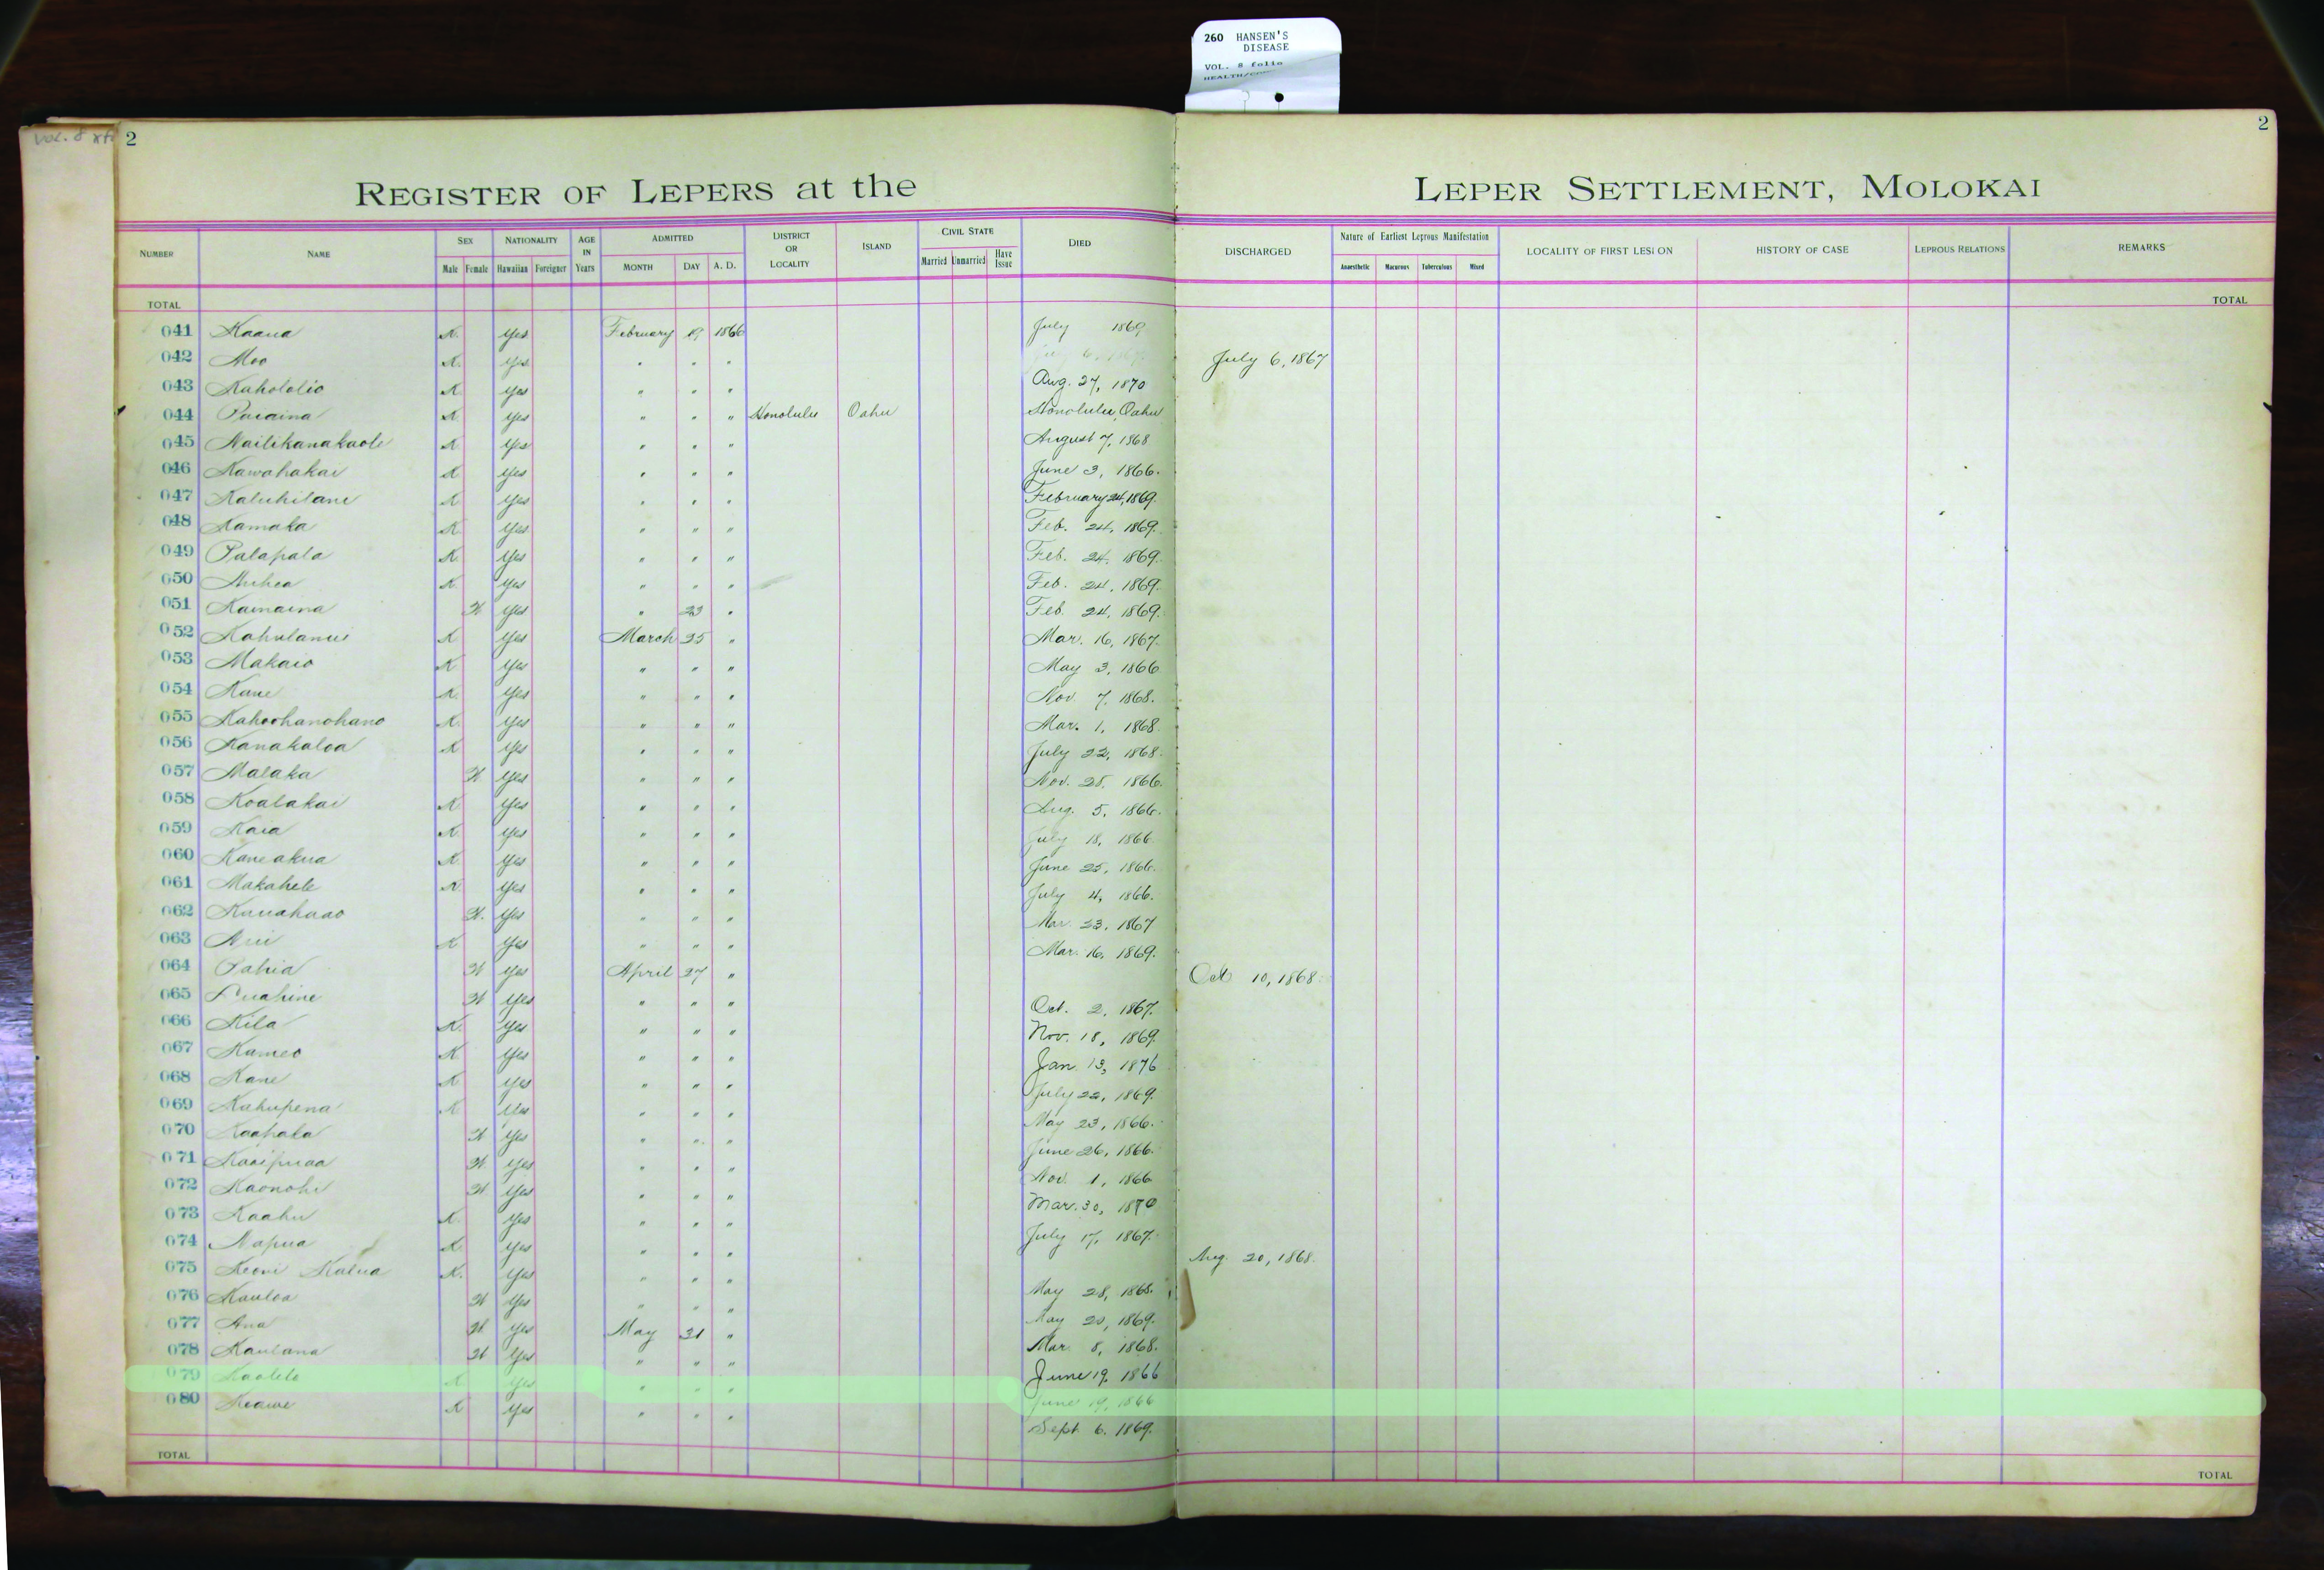 260 HANSEN'S
DISEASE
VOL. 8 folio
Vol. 8
2
2
REGISTER OF LEPERS at the LEPER SETTLEMENT, MOLOKAI
NUMBER NAME SEX Male Female NATIONALITY Hawaiian Foreigner AGE IN Years ADMITTED MONTH DAY A. D. DISTRICT OR LOCALITY ISLAND CIVIL STATE Married Unmarried Have Issue DIED DISCHARGED Nature of Earliest Leprous Manifestation Anaesthetic Macurous Tuberculous Mixed LOCALITY OF FIRST LESION HISTORY OF CASE LEPROUS RELATIONS REMARKS
TOTAL TOTAL
041 Kaaua K. Yes February 19 1866 July 1869
042 Moo K. Yes " " " July 6, 1867
043 Kahololio K Yes " " " Aug. 27, 1870
044 Puaaina K Yes " " " Honolulu Oahu Honolulu, Oahu
045 Nailikanakaole K Yes " " " August 7, 1868
046 Kawahakai K Yes " " " June 3, 1866.
047 Kaluhilani K Yes " " " February 24, 1869.
048 Kamaka K Yes " " " Feb. 24, 1869.
049 Palapala K. Yes " " " Feb. 24, 1869.
050 Auhea K. Yes " " " Feb. 24, 1869.
051 Kamaina W Yes " 23 " Feb. 24, 1869.
052 Kahulanui K Yes March 25 " Mar. 16, 1867.
053 Makaio K Yes " " " May 3, 1866
054 Kane K. Yes " " " Nov. 7, 1868.
055 Kahoohanohano K. Yes " " " Mar. 1, 1868.
056 Kanakaloa K Yes " " " July 22, 1868.
057 Malaka W Yes " " " Nov. 28, 1866.
058 Koalakai K Yes " " " Aug. 5, 1866.
059 Kaia K. Yes " " " July 18, 1866.
060 Kaneakua K Yes " " " June 25, 1866.
061 Makahele K. Yes " " " July 4, 1866.
062 Kauahaao W. Yes " " " Mar. 23, 1867
063 Aui K Yes " " " Mar. 16, 1869.
064 Pahia W Yes April 27 " Oct 10, 1868.
065 Luahine W Yes " " " Oct. 2, 1867.
066 Kila K. Yes " " " Nov. 18, 1869.
067 Kameo K Yes " " " Jan. 13, 1876
068 Kane K Yes " " " July 22, 1869.
069 Kahupena K Yes " " " May 23, 1866.
070 Kaahala W Yes " " " June 26, 1866.
071 Kaaipuaa W. Yes " " " Nov. 1, 1866
072 Kaonohi W Yes " " " Mar. 30, 1870
073 Kaahu K. Yes " " " July 17, 1867.
074 Napua K Yes " " " Aug. 20, 1868.
075 Keoni Kalua K. Yes " " " May 28, 1868.
076 Kauloa W Yes " " " May 20, 1869.
077 Ana W. Yes May 31 " Mar. 8, 1868.
078 Kaulana W Yes " " " June 19, 1866
079 Kaolelo K Yes " " " June 19, 1866
080 Keawe K Yes " " " Sept. 6, 1869.
TOTAL TOTAL